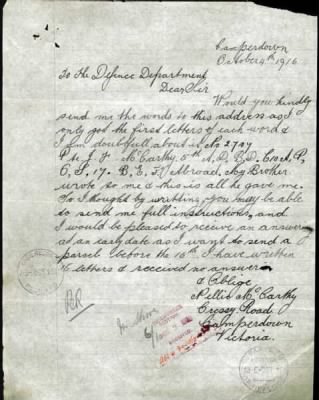 Camperdown
October 4th 1916
To the Defence Department
Dear Sir
Would you kindly
send me the words to this address as I
only got the first letters of each word &
I am doubtfull about it. No 2707
Pte J. J. McCarthy 5th A. D. B. D.
C, P, 17. B. E. F. Abroad. My Brother
wrote to me & this is all he gave me.
So I thought by writting, you may be able
to send me full instructions, and
I would be pleased to receive an answer
at an early date as I want to send a
parcel before the 10th I have written
letters & received no answer
& Oblige
Nellie McCarthy
Cressy Road
Camperdown
Victoria.